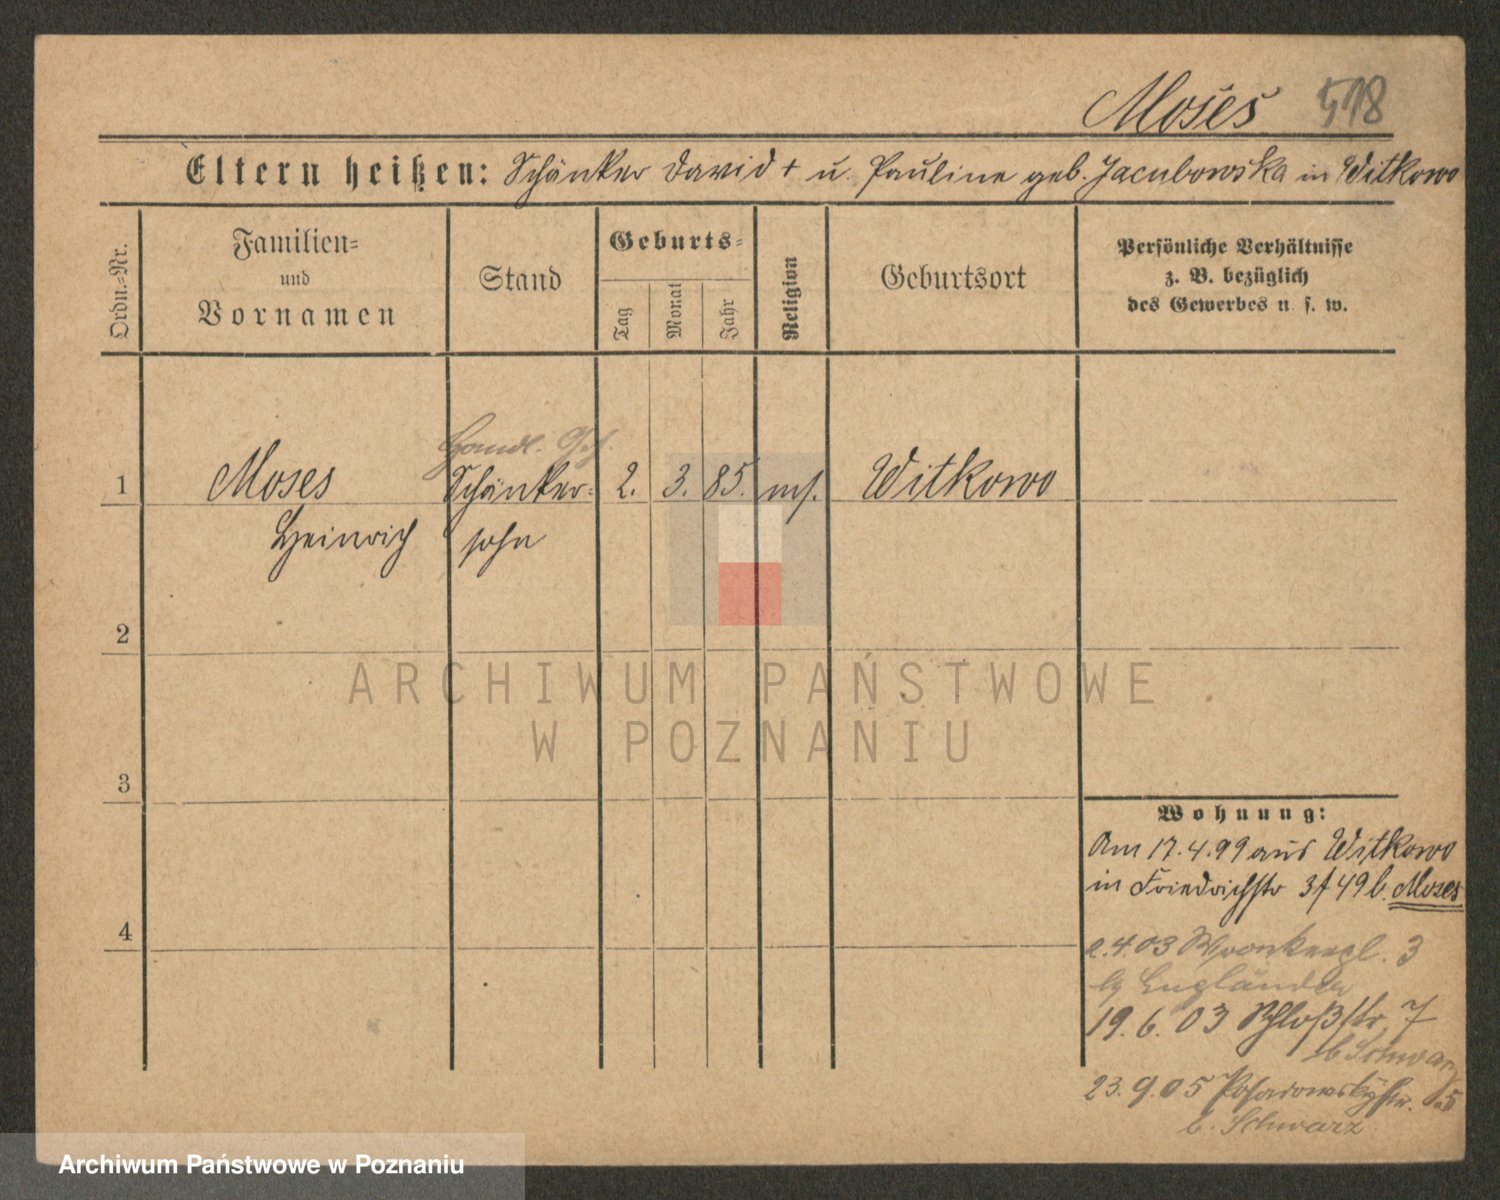 Moses 518
Eltern heißen: Schänker David + u. Pauline geb. Jacubowska in Witkowo
Ordn.-Nr.
Familien-
und
Vornamen
Stand
Geburts-
Tag
Monat
Jahr
Religion
Geburtsort
Persönliche Verhältnisse
z. B. bezüglich
des Gewerbes u. s. w.
Handl. Geh.
1 Moses Schänker- 2. 3. 85. ms. Witkowo
Heinrich sohn
2
3
4
Wohnung:
Am 17.4.99 aus Witkowo
in Friedrichstr 3 f 49 b. Moses
2.4.03 Wronkerpl. 3
b. Engländer
19.6.03 Schloßstr. 7
b Schwarz
23.9.05 Posadowskystr.
b. Schwarz
ARCHIWUM PAŃSTWOWE
W POZNANIU
Archiwum Państwowe w Poznaniu